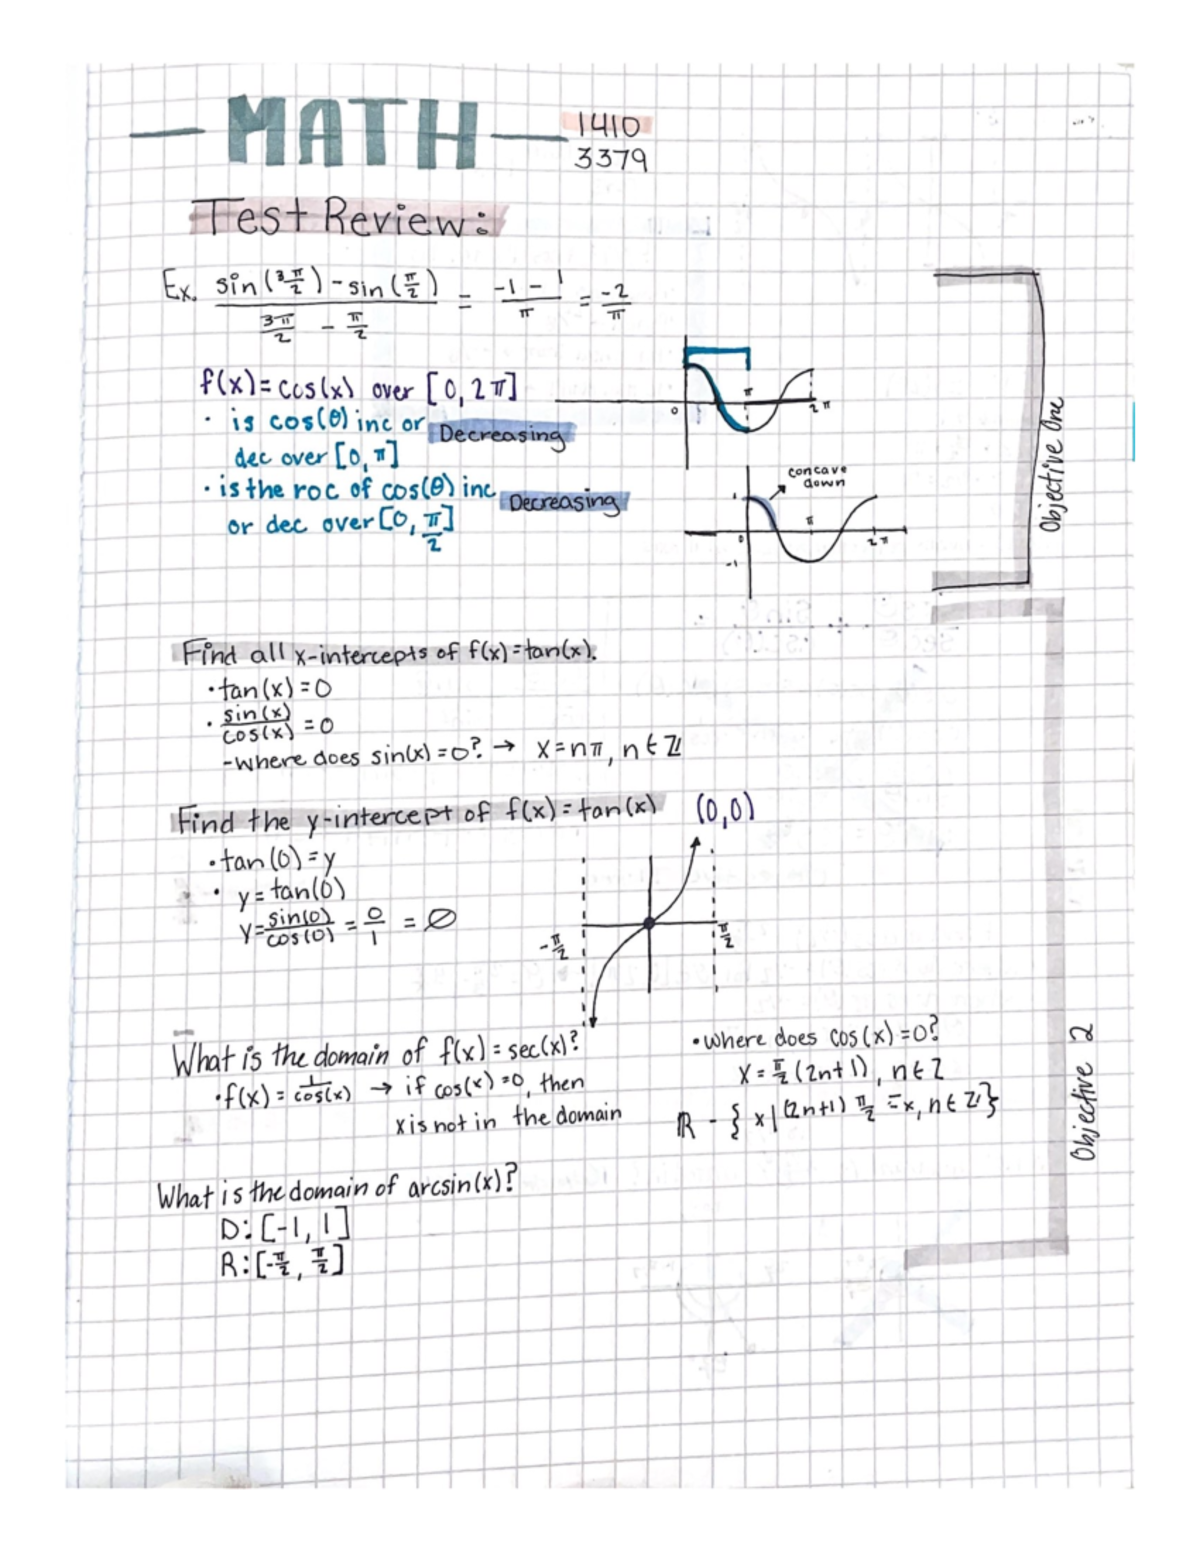 MATH
1410
3379
Test Review:
Ex. sin(3π/2) - sin(π/2) / 3π/2 - π/2 = -1 - 1 / π = -2/π
f(x) = cos(x) over [0, 2π]
• is cos(θ) inc or Decreasing
dec over [0, π]
• is the roc of cos(θ) inc Decreasing
or dec over [0, π/2]
0 π 2π
concave
down
1 π
0 2π
-1
Objective One
Find all x-intercepts of f(x) = tan(x).
• tan(x) = 0
• sin(x)/cos(x) = 0
- where does sin(x) = 0? → x = nπ, n ∈ ℤ
Find the y-intercept of f(x) = tan(x) (0,0)
• tan(0) = y
• y = tan(0)
y = sin(0)/cos(0) = 0/1 = ∅
-π/2 π/2
What is the domain of f(x) = sec(x)?
• f(x) = 1/cos(x) → if cos(x) = 0, then
x is not in the domain
• where does cos(x) = 0?
x = π/2 (2n+1), n ∈ ℤ
ℝ - { x | (2n+1) π/2 = x, n ∈ ℤ }
Objective 2
What is the domain of arcsin(x)?
D: [-1, 1]
R: [-π/2, π/2]